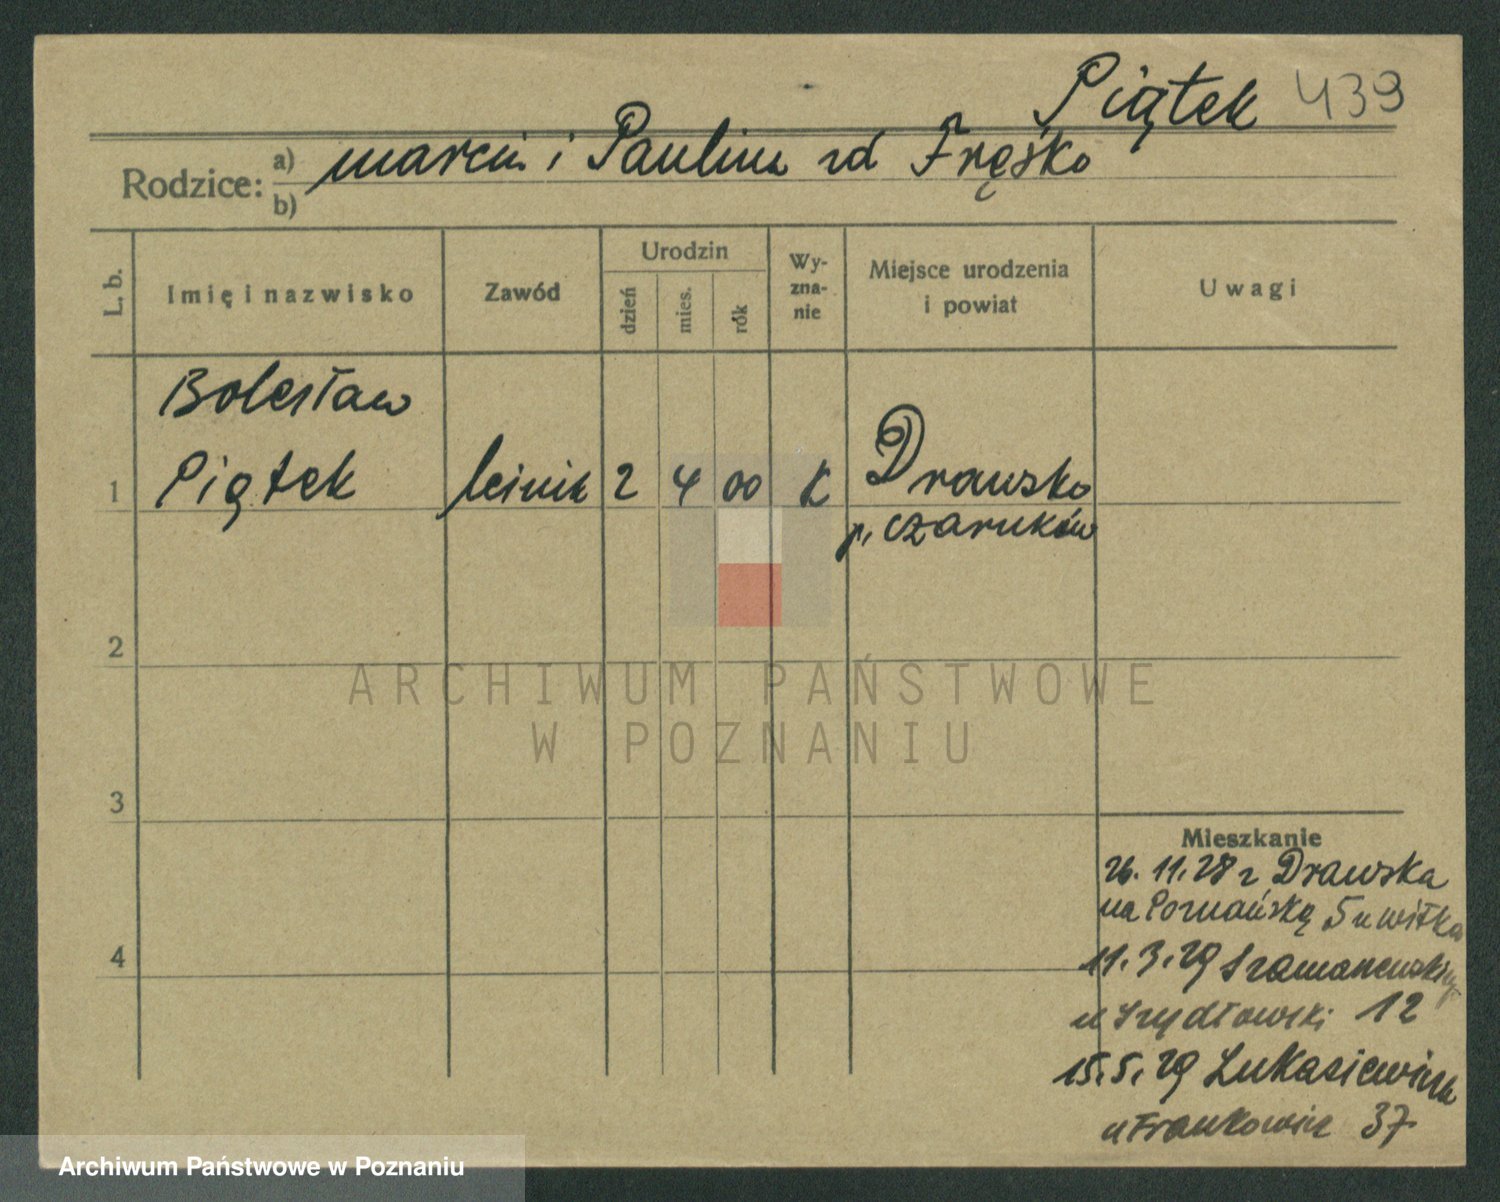 Piątek 439
Rodzice: a) Marcin i Paulina zd Fręśko
b)
L. b.
Imię i nazwisko
Zawód
Urodzin
dzień
mies.
rok
Wy-
zna-
nie
Miejsce urodzenia
i powiat
Uwagi
Bolesław
1 Piątek 2 4 00 K Drawsko
p. Czarnków
2
3
4
Mieszkanie
26.11.28 z Drawska
na Poznańską 5 u Witka
11.3.29
u Szydłowski 12
15.5.29 Łukasiewicza
u Frankowicz 37
ARCHIWUM PAŃSTWOWE
W POZNANIU
Archiwum Państwowe w Poznaniu